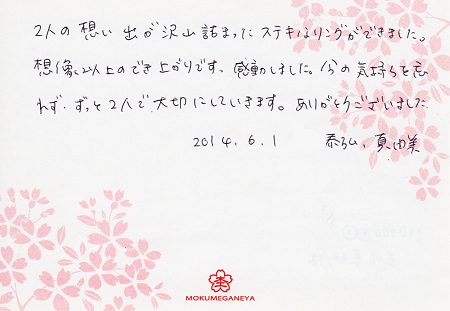 2人の想い出が沢山詰まったステキなリングができました。
想像以上のでき上がりです。感動しました。今の気持ちを忘
れず、ずっと2人で大切にしていきます。ありがとうございました
2014.6.1 泰弘、真由美
MOKUMEGANEYA